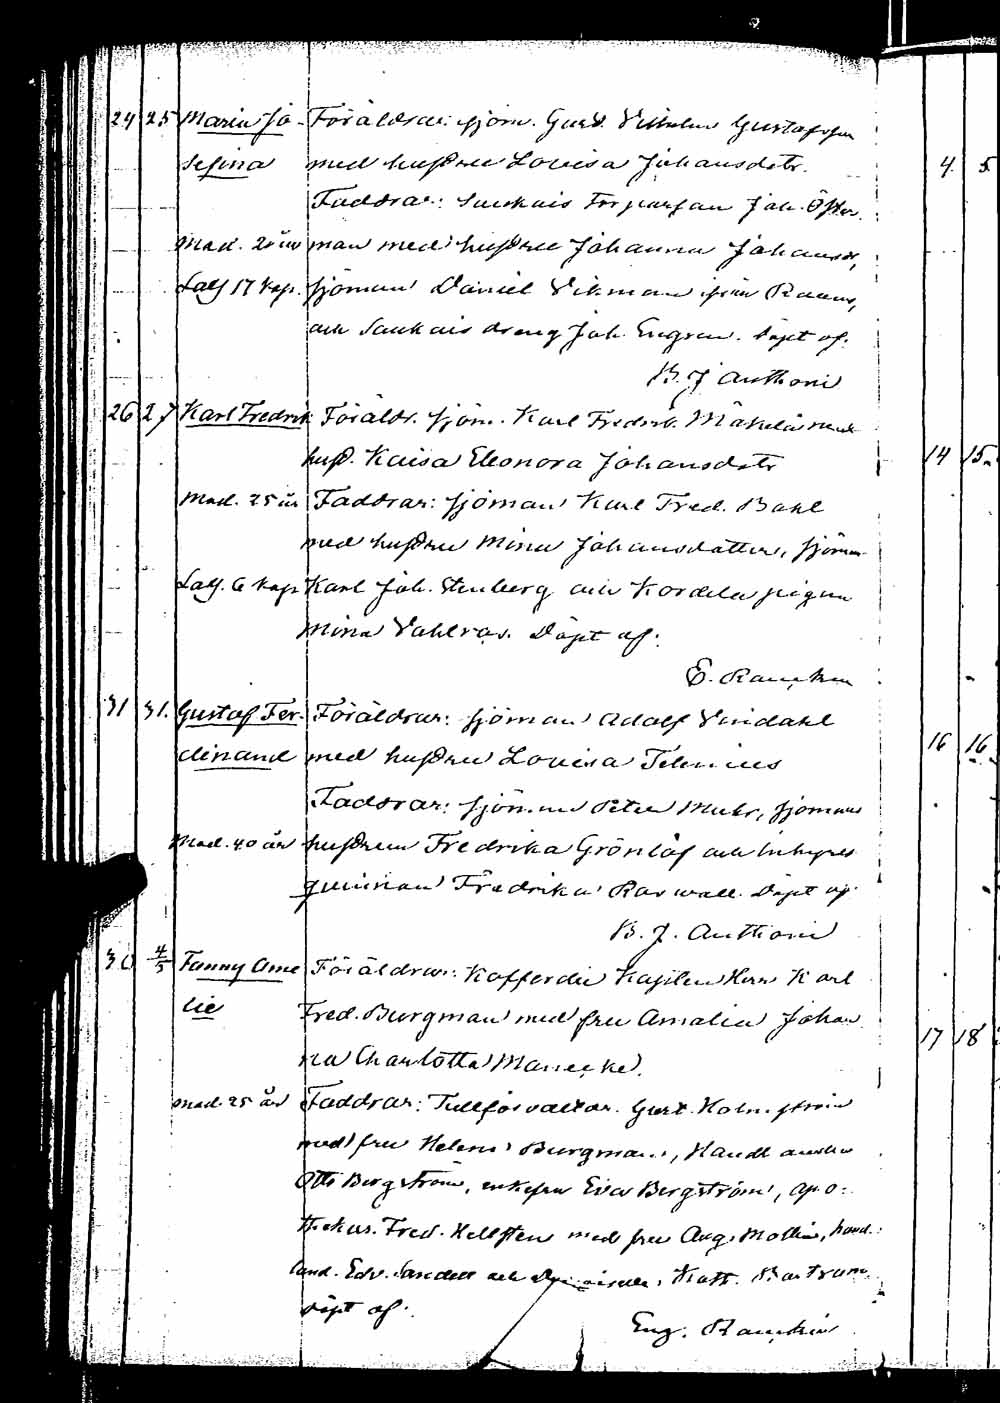 24 25 Maria Jo- Föräldrar: sjöm. Gust. Vilhelm Gustafsson
sefina med hustru Lovisa Johansdotr.
4. 5
Faddrar: Johan Öster-
Mod. 20 år man med hustru Johanna Johansdr,
17 kap. sjöman Daniel Vikman ifrån Raumo,
och dreng Joh. Engren. Döpt af:
B. J Anthoni
26 27 Karl Fredrik Föräldr. sjöm. Karl Fredrik Mäkelä med
hust. Kaisa Eleonora Johansdotr
14 15
Mod. 25 år Faddrar: sjöman Karl Fred. Dahl
med hustru Mina Johansdotter, sjöman
6 kap Karl Joh. Stenberg och Kordela pigan
Mina Vahlros. Döpt af:
E. Rancken
31 31. Gustaf Fer- Föräldrar: sjöman Adolf Lindahl
dinand med hustru Lovisa Telenius
16 16
Faddrar: sjöman Peter Muhr, sjömans
Mod. 40 år hustrun Fredrika Grönlöf och inhyses
quinnan Fredrika Döpt af
B. J. Anthoni
30 4/5 Fanny Ame Föräldrar: Kofferdie Kapten Herr Karl
lie Fred. Burgman med fru Amalia Johan
17 18
na Charlotta Mannecke.
Mod. 25 år Faddrar: Tullförvaltar. Gust. Holmström
med fru Helena Burgman, Handlanden
Otto Bergström, enkefru Eva Bergström, apo-
thekar. Fred. Hellsten med fru Aug. Mollin, hand-
land. Edv. Sandell och Kath. Bartram.
döpt af:
Eug. Rancken